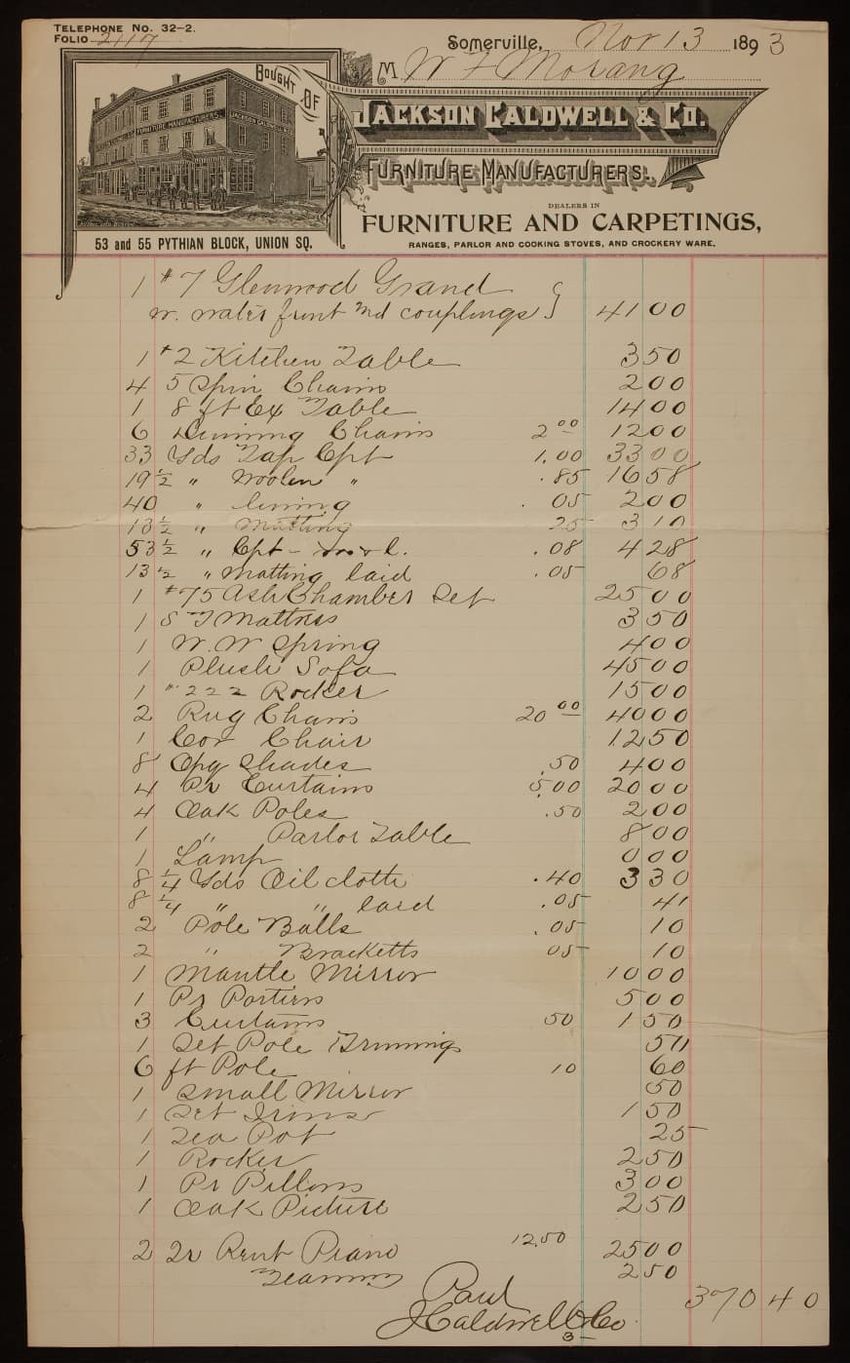 TELEPHONE NO. 32-2.
FOLIO 2117
Somerville, Nov 13 1893
M W F Morang
BOUGHT OF
JACKSON CALDWELL & CO.
FURNITURE MANUFACTURERS.
DEALERS IN
FURNITURE AND CARPETINGS,
RANGES, PARLOR AND COOKING STOVES, AND CROCKERY WARE.
53 and 55 PYTHIAN BLOCK, UNION SQ.
1 #7 Glenwood Grand
w. water front and couplings } 41 00
1 #2 Kitchen Table 3 50
4 5 Spin Chairs 2 00
1 8 ft Ex Table 14 00
6 Dinning Chairs 2 00 12 00
33 Yds Tap Cpt 1.00 33 00
19 1/2 " Woolen " .85 16 58
40 " lining .05 2 00
13 1/2 " Matting 25 3 10
53 1/2 " Cpt - & l. .08 4 28
13 1/2 " Matting laid .05 68
1 #75 Ash Chamber Set 25 00
1 S T Mattrss 3 50
1 W. W Spring 4 00
1 Plush Sofa 45 00
1 #222 Rocker 15 00
2 Rug Chairs 20 00 40 00
1 Cor Chair 12 50
8 Opq Shades .50 4 00
4 Pr Curtains 5.00 20 00
4 Oak Poles .50 2 00
1 " Parlor Table 8 00
1 Lamp 0 00
8 1/4 Yds Oil cloth .40 3 30
8 1/4 " " laid .05 41
2 Pole Balls .05 10
2 " Bracketts 05 10
1 Mantle Mirror 10 00
1 Pr Portiers 5 00
3 Curtains 50 1 50
1 Set Pole Trimmings 50
6 ft Pole 10 60
1 Small Mirror 50
1 Set Irons 1 50
1 Tea Pot 25
1 Rocker 2 50
1 Pr Pillows 3 00
1 Oak Picture 2 50
2 Qr Rent Piano 12.50 25 00
Teaming 2 50
370 40
Paid
J Caldwell & Co